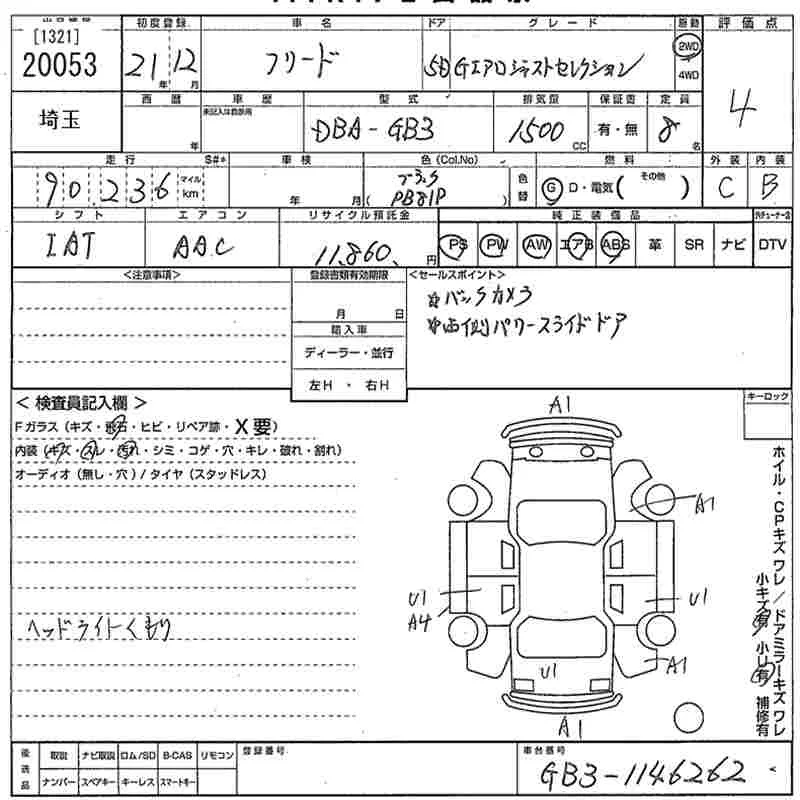 [1321]
20053
埼玉
初度登録
21年 12月
車名
フリード
ドア
5D
グレード
Gエアロジャストセレクション
駆動
2WD
4WD
評価点
4
西暦
年
車歴
未記入は自家用
型式
DBA-GB3
排気量
1500 CC
保証書
有・無
定員
8名
走行
90,236
マイル
km
S#*
車検
年 月
色(Col.No)
( PB81P )
色替
燃料
G D・電気( その他 )
外装
C
内装
B
シフト
IAT
エアコン
AAC
リサイクル預託金
11,860.円
純正装備品
PS PW AW エアB ABS 革 SR ナビ
DTV
<注意事項>
登録書類有効期限
月 日
輸入車
ディーラー・並行
左H ・ 右H
<セールスポイント>
☆バックカメラ
☆両側パワースライドドア
< 検査員記入欄 >
Fガラス (キズ・飛石・ヒビ・リペア跡・X要)
内装 (キズ・スレ・汚れ・シミ・コゲ・穴・キレ・破れ・割れ)
オーディオ (無し・穴) / タイヤ (スタッドレス)
ヘッドライトくもり
キーロック
A1
A1
U1
A4
U1
A1
U1
A1
ホイル・CPキズ ワレ / ドアミラーキズ ワレ
小キズ有 小U有 補修有
後送品
取説 ナビ取説 ロム/SD B-CAS リモコン
ナンバー スペアキー キーレス スマートキー
登録番号
車台番号
GB3-1146262